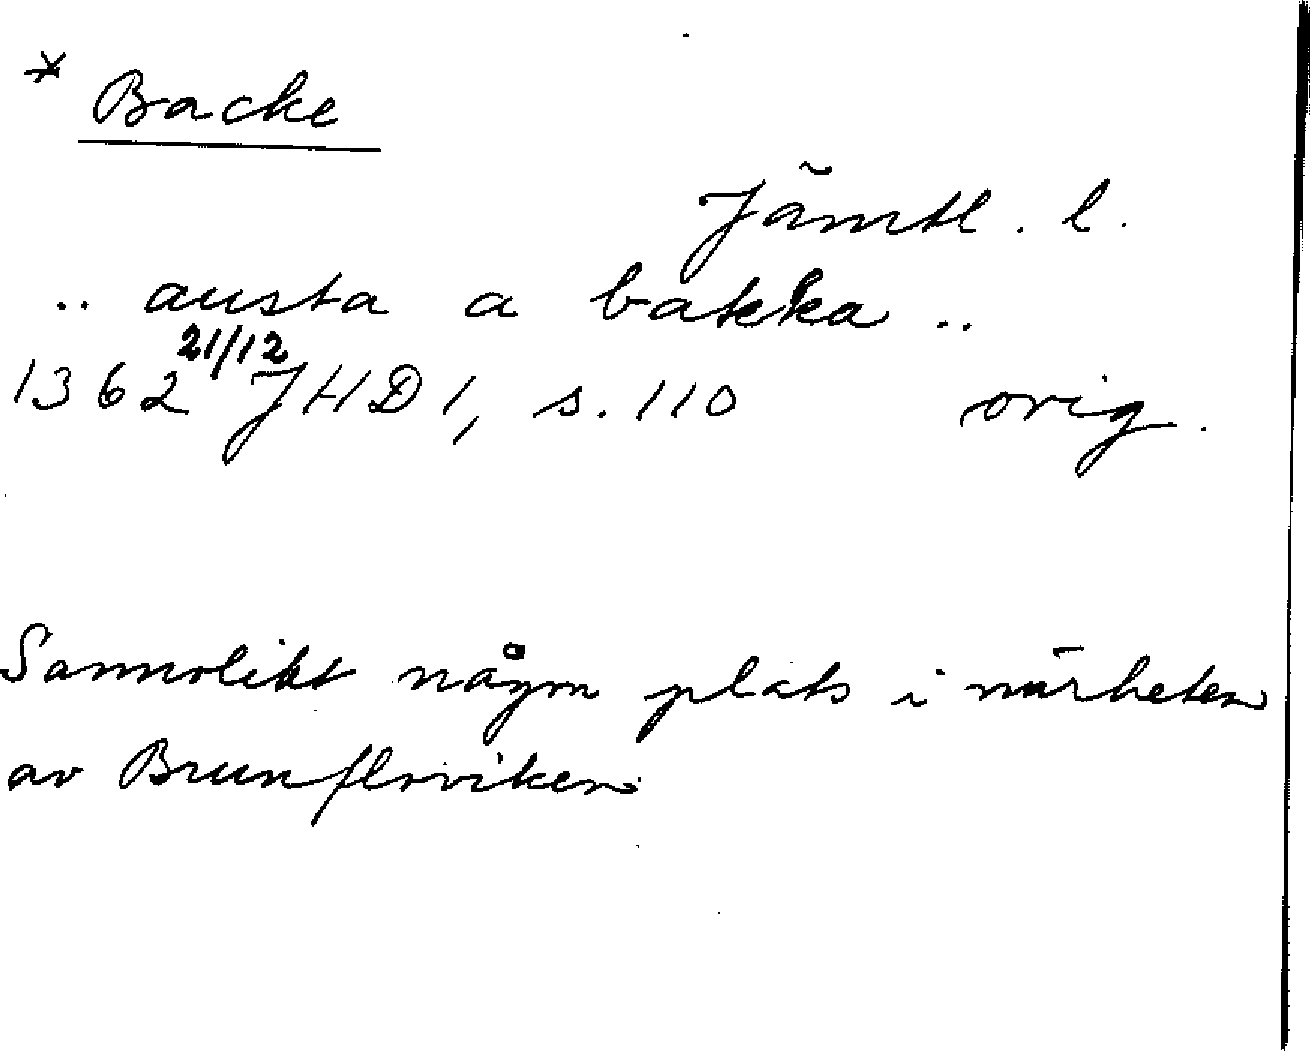 * Backe
Jämtl. l.
.. austa a bakka ..
1362 21/12 JHD 1, s. 110 orig.
Sannolikt någon plats i närheten
av Brunfloviken